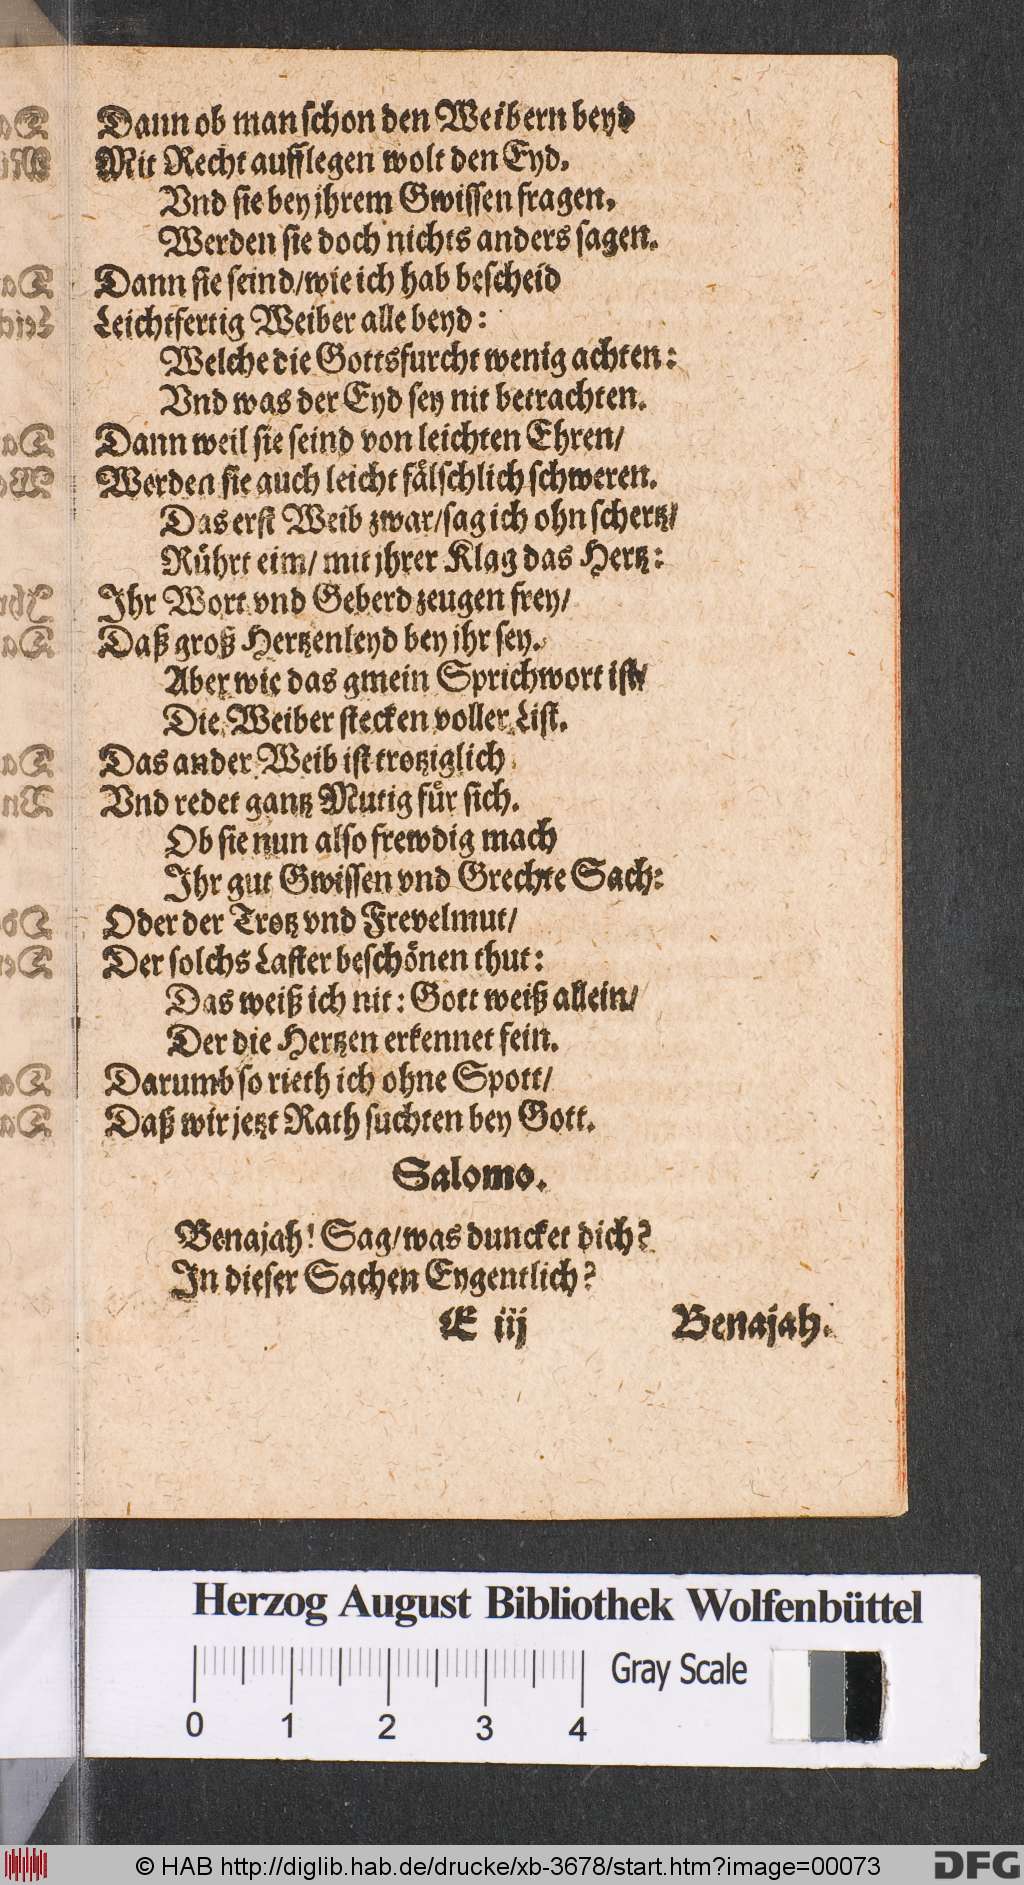 Dann ob man schon den Weibern beyd
Mit Recht aufflegen wolt den Eyd,
Vnd sie bey jhrem Gwissen fragen,
Werden sie doch nichts anders sagen.
Dann sie seind/wie ich hab bescheid
Leichtfertig Weiber alle beyd:
Welche die Gottsfurcht wenig achten:
Vnd was der Eyd sey nit betrachten.
Dann weil sie seind von leichten Ehren/
Werden sie auch leicht fälschlich schweren.
Das erst Weib zwar/sag ich ohn schertz/
Rührt eim/ mit jhrer Klag das Hertz:
Ihr Wort vnd Geberd zeugen frey/
Daß groß Hertzenleyd bey jhr sey.
Aber wie das gmein Sprichwort ist/
Die Weiber stecken voller List.
Das ander Weib ist trotziglich
Vnd redet gantz Mutig für sich.
Ob sie nun also frewdig mach
Ihr gut Gwissen vnd Grechte Sach:
Oder der Trotz vnd Frevelmut/
Der solchs Laster beschönen thut:
Das weiß ich nit: Gott weiß allein/
Der die Hertzen erkennet fein.
Darumb so rieth ich ohne Spott/
Daß wir jetzt Rath suchten bey Gott.
Salomo.
Benajah! Sag/was duncket dich?
In dieser Sachen Eygentlich?
E iij Benajah.
Herzog August Bibliothek Wolfenbüttel
Gray Scale
0 1 2 3 4
© HAB http://diglib.hab.de/drucke/xb-3678/start.htm?image=00073
DFG